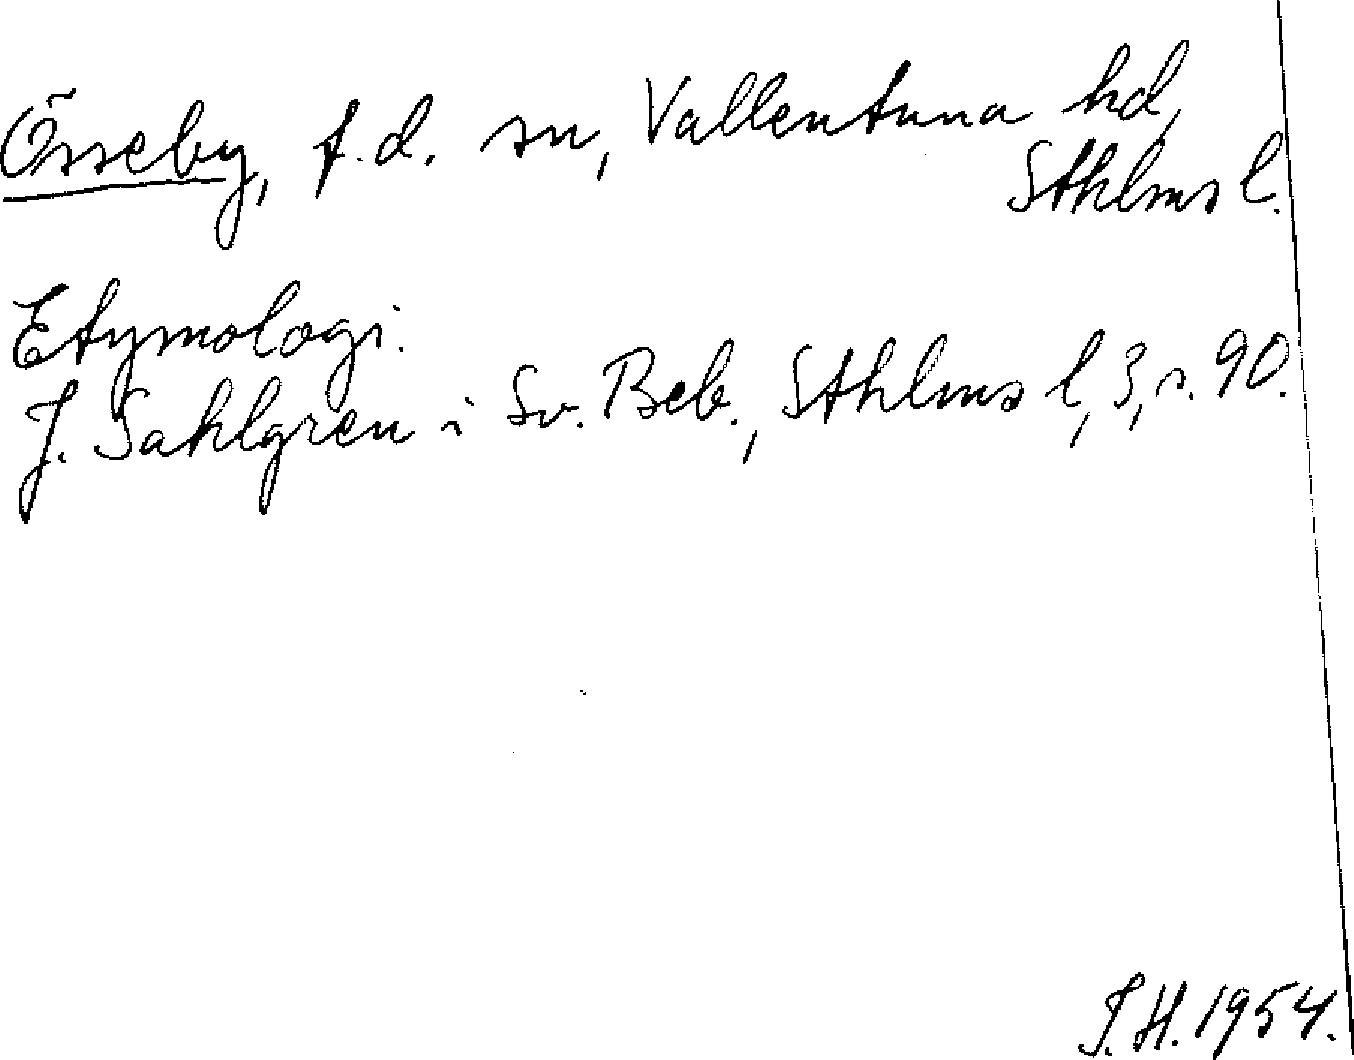 Össeby, f.d. sn, Vallentuna hd,
Sthlms l.
Etymologi.
J. Sahlgren i Sv. Beb., Sthlms l, 3, s. 90.
S.H. 1954.